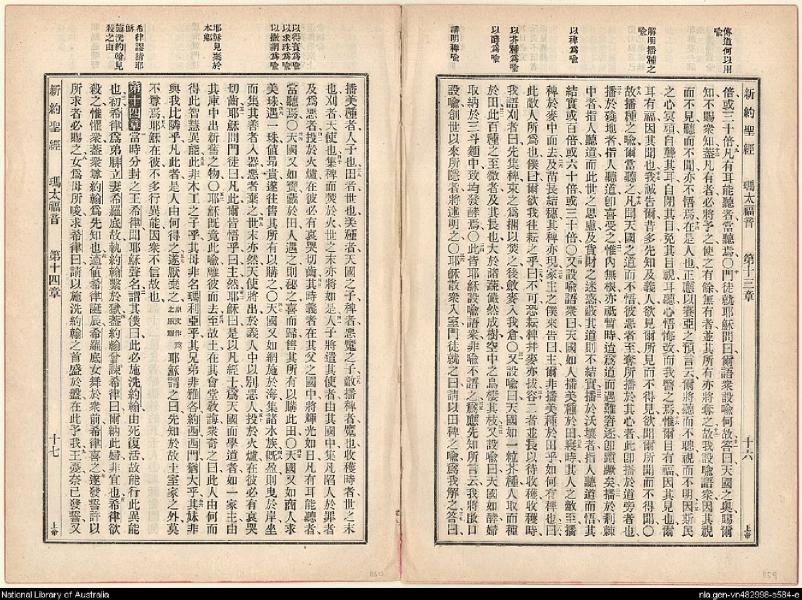 傳道何以用
喩
解明播種之
喩
以稗爲喩
以芥種爲喩
以酵爲喩
講明稗喩
新約聖經 瑪太福音 第十三章 十六 上帝
倍或三十倍凡有耳能聽者當聽焉〇門徒就耶穌問曰爾語衆設喩何故答曰天國之奧賜爾
知不賜衆知蓋凡有者必將予之使之有餘無有者並其所有亦將奪之故我設喩語衆因其視
而不見聽而不聞亦不悟焉在是人也正應以賽亞之預言云爾將聽而不聰視而不明因斯民
之心冥頑自聾其耳自閉其目免其目視耳聽心悟悔改而我醫之焉惟爾目有福因其見也爾
耳有福因其聞也我誠告爾昔多先知及義人欲見爾所見而不得見欲聞爾所聞而不得聞〇
故播種之喩爾當聽之凡聞天國之道而不悟彼惡者至奪所播於其心者此卽播於道旁者也
播於磽地者指人聽道卽喜受之惟內無根亦祗暫時爲道而遇難窘逐卽躓蹶矣播於荊棘
中者指人聽道而此世之思慮及貨財之迷惑蔽其道則不結實播於沃壤者指人聽道而悟其
結實或百倍或六十倍或三十倍〇又設喩語衆曰天國如人播美種於田寢時其人之敵至播
稗於麥中而去及苗長結穗其稗亦現家主之僕來告曰主爾非播美種於田乎如何有稗也曰
此敵人所爲也僕曰爾欲我往耘之乎曰不可恐耘稗並麥亦拔容二者並長以待收穫收穫時
我語刈者曰先集稗束之爲捆以焚之後斂麥入我倉〇又設喩曰天國如一粒芥種人取而種
於田此百種之至微者及其長也大於諸蔬儼然成樹空中之鳥棲其枝又設喩曰天國如酵婦
取納於三斗麵中致均發酵焉〇此皆耶穌設喩語衆非喩不語之爲應先知所言云我將啟口
設喩創世以來所隱者將述明之〇耶穌散衆入室門徒就之曰請以田稗之喩爲我解之答曰
以得寶爲喩
以求珠爲喩
以撒網爲喩
耶穌見棄於
本鄉
希律認諸耶
穌
施洗約翰見
殺之由
播美種者人子也田者世也美種者天國之子稗者惡魔之子敵播稗者魔也收穫時者世之末
也刈者天使也集稗而爇於火世末亦將如是人子將遣其使者由其國中集凡陷人於罪者
及爲惡者投於火爐在彼必有哀哭切齒其時義者在其父之國中將輝光如日凡有耳能聽者
當聽焉〇天國又如寶藏於田人遇之則秘之喜而歸售其所有以購此田〇天國又如商人求
美珠遇一珠值昂貴遂往售其所有以購之〇天國又如網施於海集諸水族旣盈則曳於岸坐
而集其善者入器惡者棄之世末亦然天使將出於義人中以別惡人投於火爐在彼必有哀哭
切齒耶穌問門徒曰凡此爾皆悟乎曰主然耶穌曰是以凡經士爲天國而學道者如一家主由
其庫中出新舊之物〇耶穌旣竟此喩離彼而去至故土在其會堂教誨衆奇之曰此人由何而
得此智慧與異能此非木工之子乎其母非名瑪利亞乎其兄弟非雅各約西西門猶大乎其妹非
與我比隣乎凡此者是人由何得之遂厭棄之 耶穌謂之曰先知於故土室家之外莫
不尊焉耶穌在彼不多行異能因衆不信故也
第十四章當時分封之王希律聞耶穌聲名謂其僕曰此必施洗約翰由死復活故能行此異能
也初希律爲弟腓立妻希羅底故執約翰繫於獄蓋約翰嘗諫希律曰爾納此婦非宜也希律欲
殺之惟懼衆蓋衆尊約翰爲先知也適値希律誕辰希羅底女舞於衆前希律喜之遂發誓許以
所求者必賜之女爲母所唆求希律曰請以施洗約翰之首盛於盤在此予我王憂柰已發誓又
新約聖經 瑪太福音 第十四章 十七 上帝
National Library of Australia
nla.gen-vn482998-s584-e